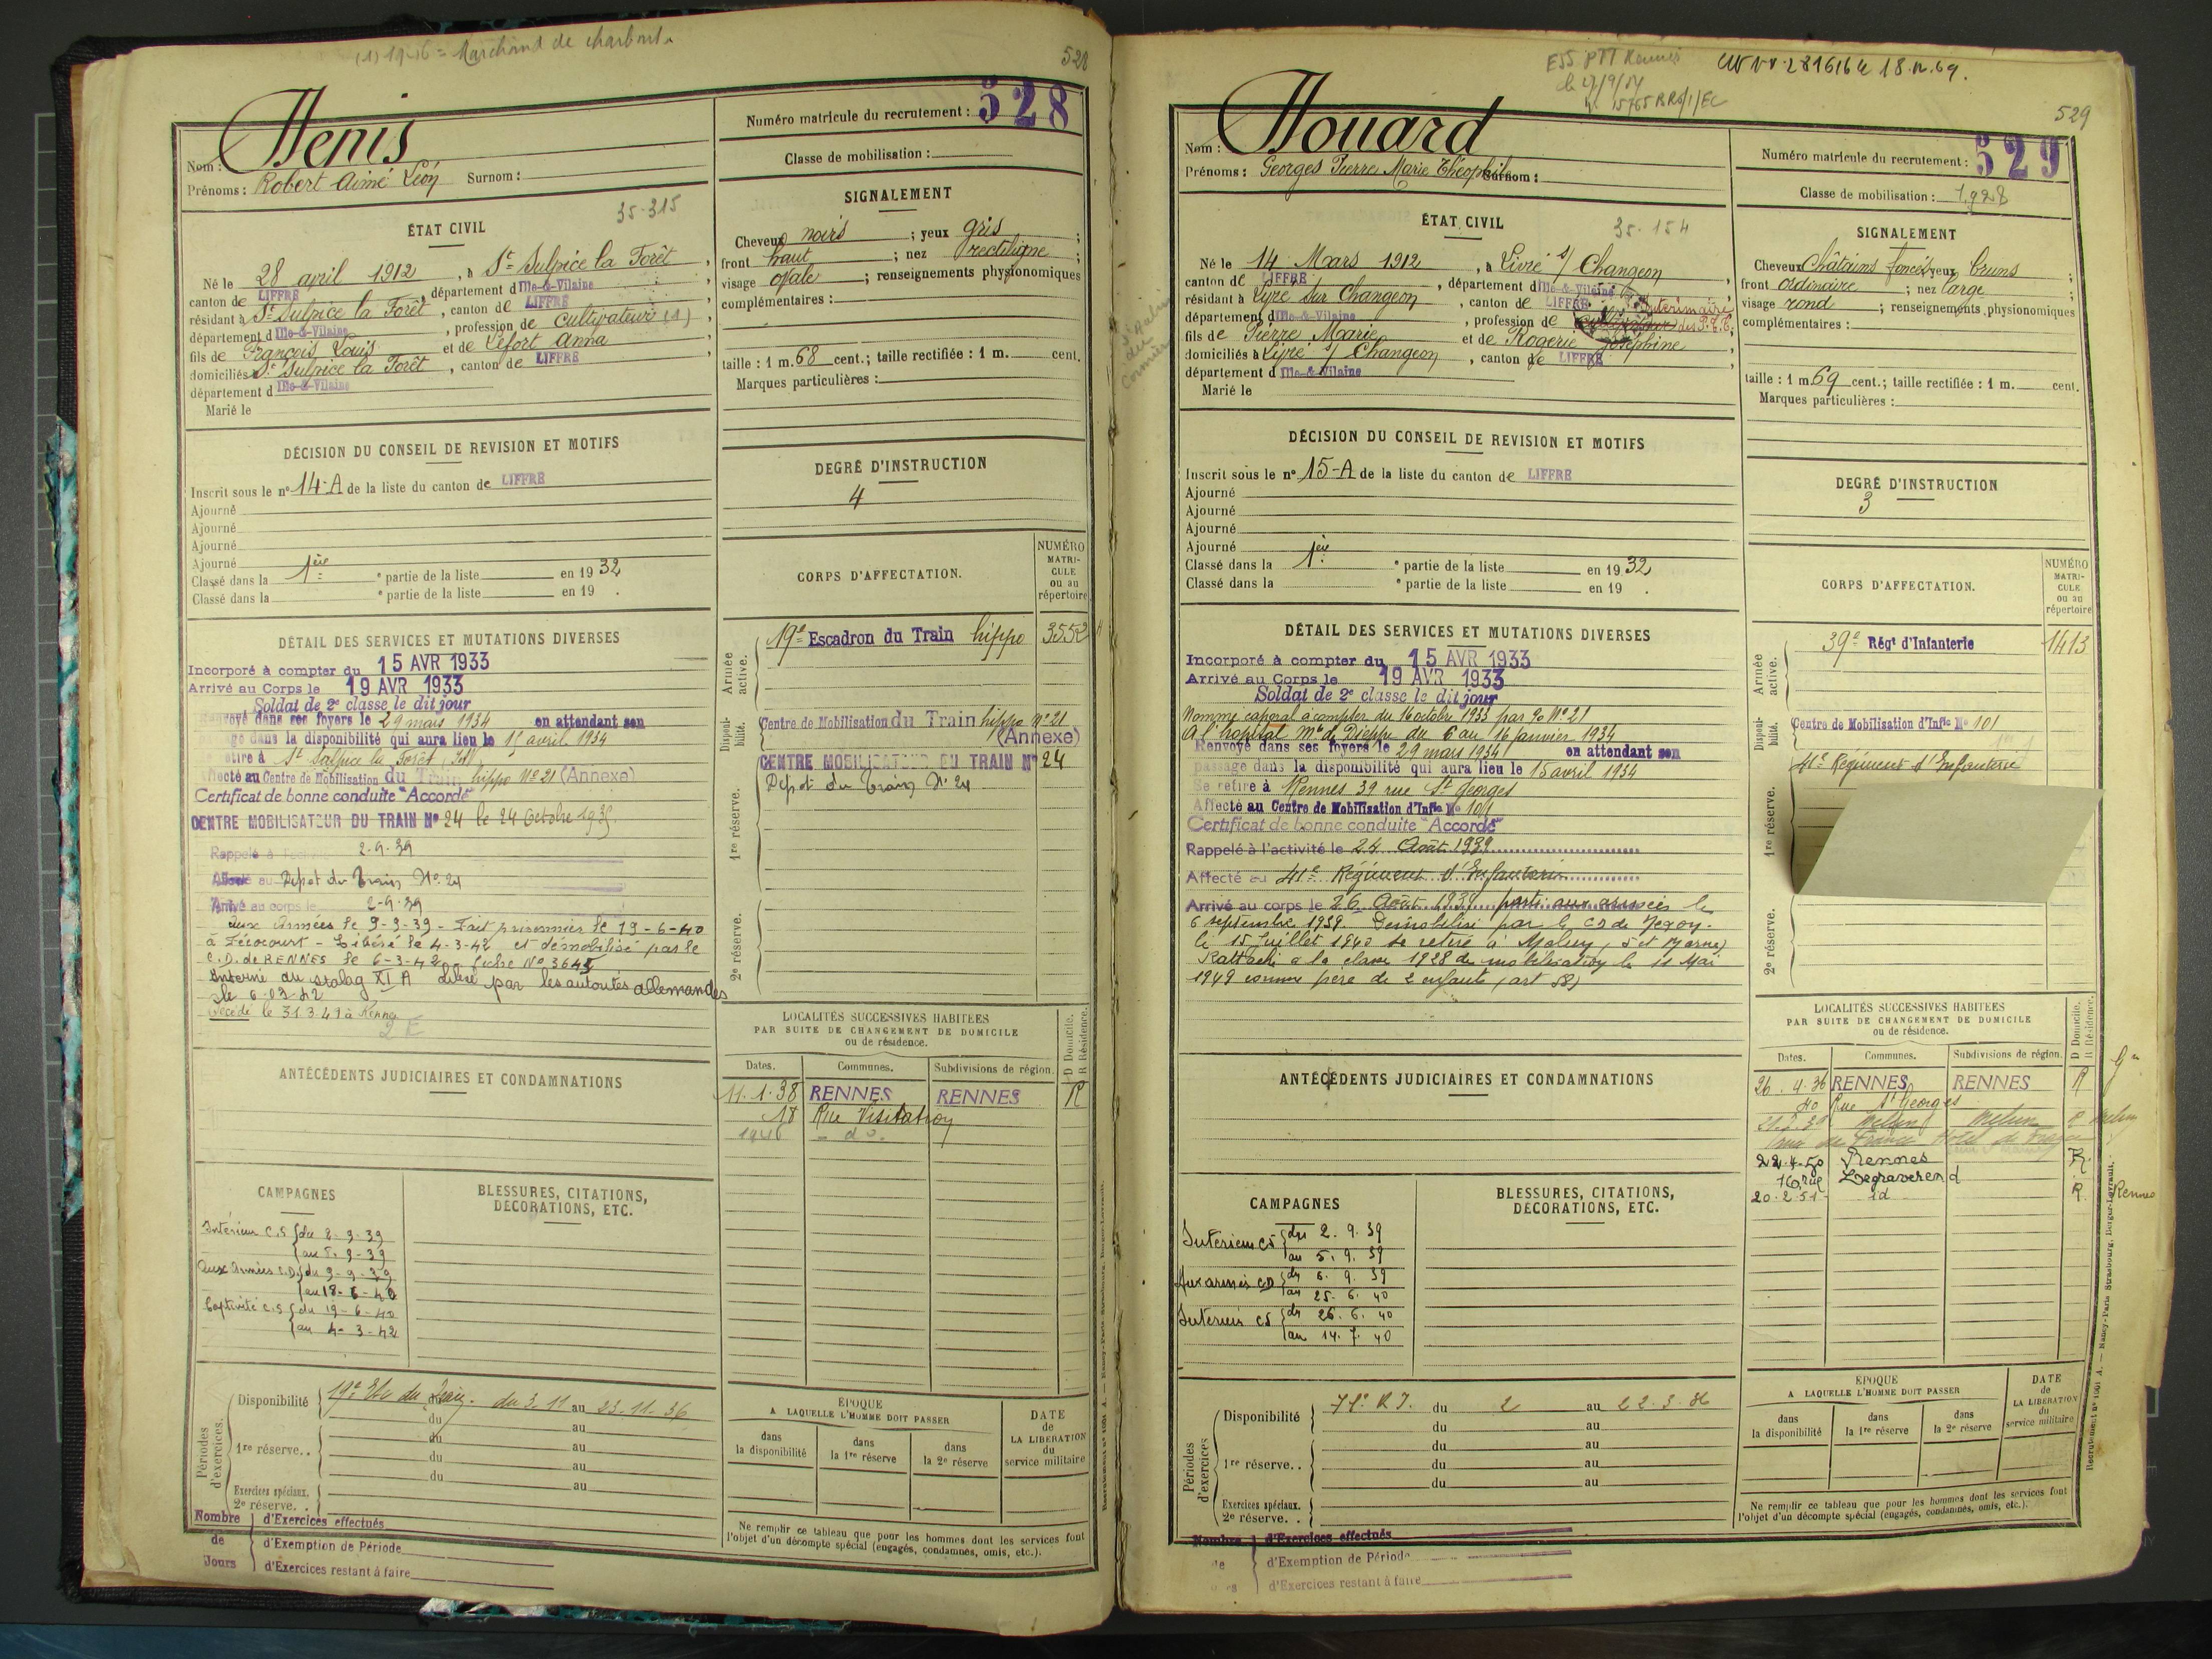 (1) 1946 = Marchand de charbon
528
Nom : Henis
Prénoms : Robert Aimé Léon Surnom :
Numéro matricule du recrutement : 528
Classe de mobilisation :
ÉTAT CIVIL
35-315
Né le 28 avril 1912, à St Sulpice la Forêt,
canton de LIFFRÉ, département d Ille-&-Vilaine
résidant à St Sulpice la Forêt, canton de LIFFRÉ
département d Ille-&-Vilaine, profession de cultivateur (1),
fils de François Louis et de Lefort Anna
domiciliés à St Sulpice la Forêt, canton de LIFFRÉ
département d Ille-&-Vilaine
Marié le
SIGNALEMENT
Cheveux noirs ; yeux gris ;
front haut ; nez rectiligne ;
visage ovale ; renseignements physionomiques
complémentaires :
taille : 1 m. 68 cent.; taille rectifiée : 1 m. cent.
Marques particulières :
DÉCISION DU CONSEIL DE REVISION ET MOTIFS
Inscrit sous le n° 14-A de la liste du canton de LIFFRÉ
Ajourné
Ajourné
Ajourné
Ajourné
Classé dans la 1ère e partie de la liste en 1932
Classé dans la e partie de la liste en 19 .
DEGRÉ D'INSTRUCTION
4
DÉTAIL DES SERVICES ET MUTATIONS DIVERSES
Incorporé à compter du 15 AVR 1933
Arrivé au Corps le 19 AVR 1933
Soldat de 2e classe le dit jour
Renvoyé dans ses foyers le 29 mars 1934 en attendant son
passage dans la disponibilité qui aura lieu le 15 avril 1934
Se retire à St Sulpice la Forêt (I&V)
Affecté au Centre de Mobilisation du Train hippo N° 21 (Annexe)
Certificat de bonne conduite "Accordé"
CENTRE MOBILISATEUR DU TRAIN N° 24 le 24 Octobre 193
Rappelé à l'activité 2-9-39
Affecté au Dépot du Train N° 24
Arrivé au corps le 2-9-39
Aux Armées le 9-9-39 - Fait prisonnier le 19-6-40
à Fécocourt - Libéré le 4-3-42 et démobilisé par le
C.D. de RENNES le 6-3-42 - fiche N° 3645
Interné au stalag XI A Libéré par les autorités allemandes
le 6-03-42
Décédé le 31.3.49 à Rennes
CORPS D'AFFECTATION.
NUMÉRO MATRICULE ou au répertoire
Armée active.
19e Escadron du Train hippo 3552
Disponibilité.
Centre de Mobilisation du Train hippo N° 21
(Annexe)
CENTRE MOBILISATEUR DU TRAIN N° 24
Dépot du Train N° 24
1re réserve.
2e réserve.
LOCALITÉS SUCCESSIVES HABITÉES
PAR SUITE DE CHANGEMENT DE DOMICILE
ou de résidence.
D Domicile. R Résidence.
Dates. Communes. Subdivisions de région.
11.1.38 RENNES RENNES R
18 Rue Visitation
1946 - do.
ANTÉCÉDENTS JUDICIAIRES ET CONDAMNATIONS
CAMPAGNES
Intérieur C.S du 2-9-39
au 8-9-39
Aux Armées C.D. du 9-9-39
au 18-6-40
Captivité C.S du 19-6-40
au 4-3-42
BLESSURES, CITATIONS,
DÉCORATIONS, ETC.
Périodes d'exercices.
Disponibilité 19e Etr du Train. du 3.11 au 23.11.36
du au
1re réserve.. du au
du au
du au
Exercices spéciaux.
2e réserve. .
Nombre de Jours
d'Exercices effectués
d'Exemption de Période
d'Exercices restant à faire
ÉPOQUE
A LAQUELLE L'HOMME DOIT PASSER
dans la disponibilité
dans la 1re réserve
dans la 2e réserve
DATE de LA LIBÉRATION du service militaire
Ne remplir ce tableau que pour les hommes dont les services font
l'objet d'un décompte spécial (engagés, condamnés, omis, etc.).
ESS PTT Rennes
15765 RR6/1/EC
18.12.69.
529
Nom : Houard
Prénoms : Georges Pierre Marie Théophile Surnom :
Numéro matricule du recrutement : 529
Classe de mobilisation : 1928
ÉTAT CIVIL
35-154
Né le 14 Mars 1912, à Livré s/ Changeon
canton de LIFFRÉ, département d Ille-&-Vilaine
résidant à Livré sur Changeon, canton de LIFFRÉ
département d Ille-&-Vilaine, profession de Intérimaire des P.T.T,
fils de Pierre Marie et de Rogerie Joséphine
domiciliés à Livré s/ Changeon, canton de LIFFRÉ
département d Ille-&-Vilaine
Marié le
St Aubin du Cormier
SIGNALEMENT
Cheveux Châtains foncés yeux bruns ;
front ordinaire ; nez large ;
visage rond ; renseignements physionomiques
complémentaires :
taille : 1 m 69 cent.; taille rectifiée : 1 m. cent.
Marques particulières :
DÉCISION DU CONSEIL DE REVISION ET MOTIFS
Inscrit sous le n° 15-A de la liste du canton de LIFFRÉ
Ajourné
Ajourné
Ajourné
Ajourné
Classé dans la 1ère e partie de la liste en 1932
Classé dans la e partie de la liste en 19 .
DEGRÉ D'INSTRUCTION
3
DÉTAIL DES SERVICES ET MUTATIONS DIVERSES
Incorporé à compter du 15 AVR 1933
Arrivé au Corps le 19 AVR 1933
Soldat de 2e classe le dit jour
Nommé caporal à compter du 16 octobre 1933 par go N° 21
A l'hôpital Mre de Dieppe du 6 au 16 janvier 1934
Renvoyé dans ses foyers le 29 mars 1934 en attendant son
passage dans la disponibilité qui aura lieu le 15 avril 1934
Se retire à Rennes 39 rue St Georges
Affecté au Centre de Mobilisation d'Infie N° 101
Certificat de bonne conduite "Accordé"
Rappelé à l'activité le 24 Août 1939
Affecté au 41e Régiment d'Infanterie
Arrivé au corps le 26 Août 1939 parti aux armées le
6 septembre 1939 Démobilisé par le CD de
le 15 Juillet 1940 se retire à Melun, S et Marne)
Rattaché à la classe 1928 de mobilisation le 11 Mai
1949 comme père de 2 enfants (art 58)
CORPS D'AFFECTATION.
NUMÉRO MATRICULE ou au répertoire
Armée active.
39e Régt d'Infanterie 1413
Disponibilité.
Centre de Mobilisation d'Infie N° 101
41e Régiment d'Infanterie
1re réserve.
2e réserve.
LOCALITÉS SUCCESSIVES HABITÉES
PAR SUITE DE CHANGEMENT DE DOMICILE
ou de résidence.
D Domicile. R Résidence.
Dates. Communes. Subdivisions de région.
26.4.36 RENNES RENNES R
40 Rue St Georges
Melun Melun R Melun
22-4-50 Rennes R.
16 rue Legraverend
20-2-51 id R. Rennes
ANTÉCÉDENTS JUDICIAIRES ET CONDAMNATIONS
CAMPAGNES
Intérieur CS du 2.9.39
au 5.9.39
Aux armées CD du 6.9.39
au 25.6.40
Intérieur CS du 26.6.40
au 14.7.40
BLESSURES, CITATIONS,
DÉCORATIONS, ETC.
Périodes d'exercices
Disponibilité 71e R.I. du 2 au 22.3.36
du au
du au
1re réserve.. du au
du au
Exercices spéciaux.
2e réserve. .
Nombre de Jours
d'Exercices effectués
d'Exemption de Période
d'Exercices restant à faire
ÉPOQUE
A LAQUELLE L'HOMME DOIT PASSER
dans la disponibilité
dans la 1re réserve
dans la 2e réserve
DATE de LA LIBÉRATION du service militaire
Ne remplir ce tableau que pour les hommes dont les services font
l'objet d'un décompte spécial (engagés, condamnés, omis, etc.).
Recrutement n° 1001 A. — Nancy-Paris Strasbourg, Berger-Levrault.